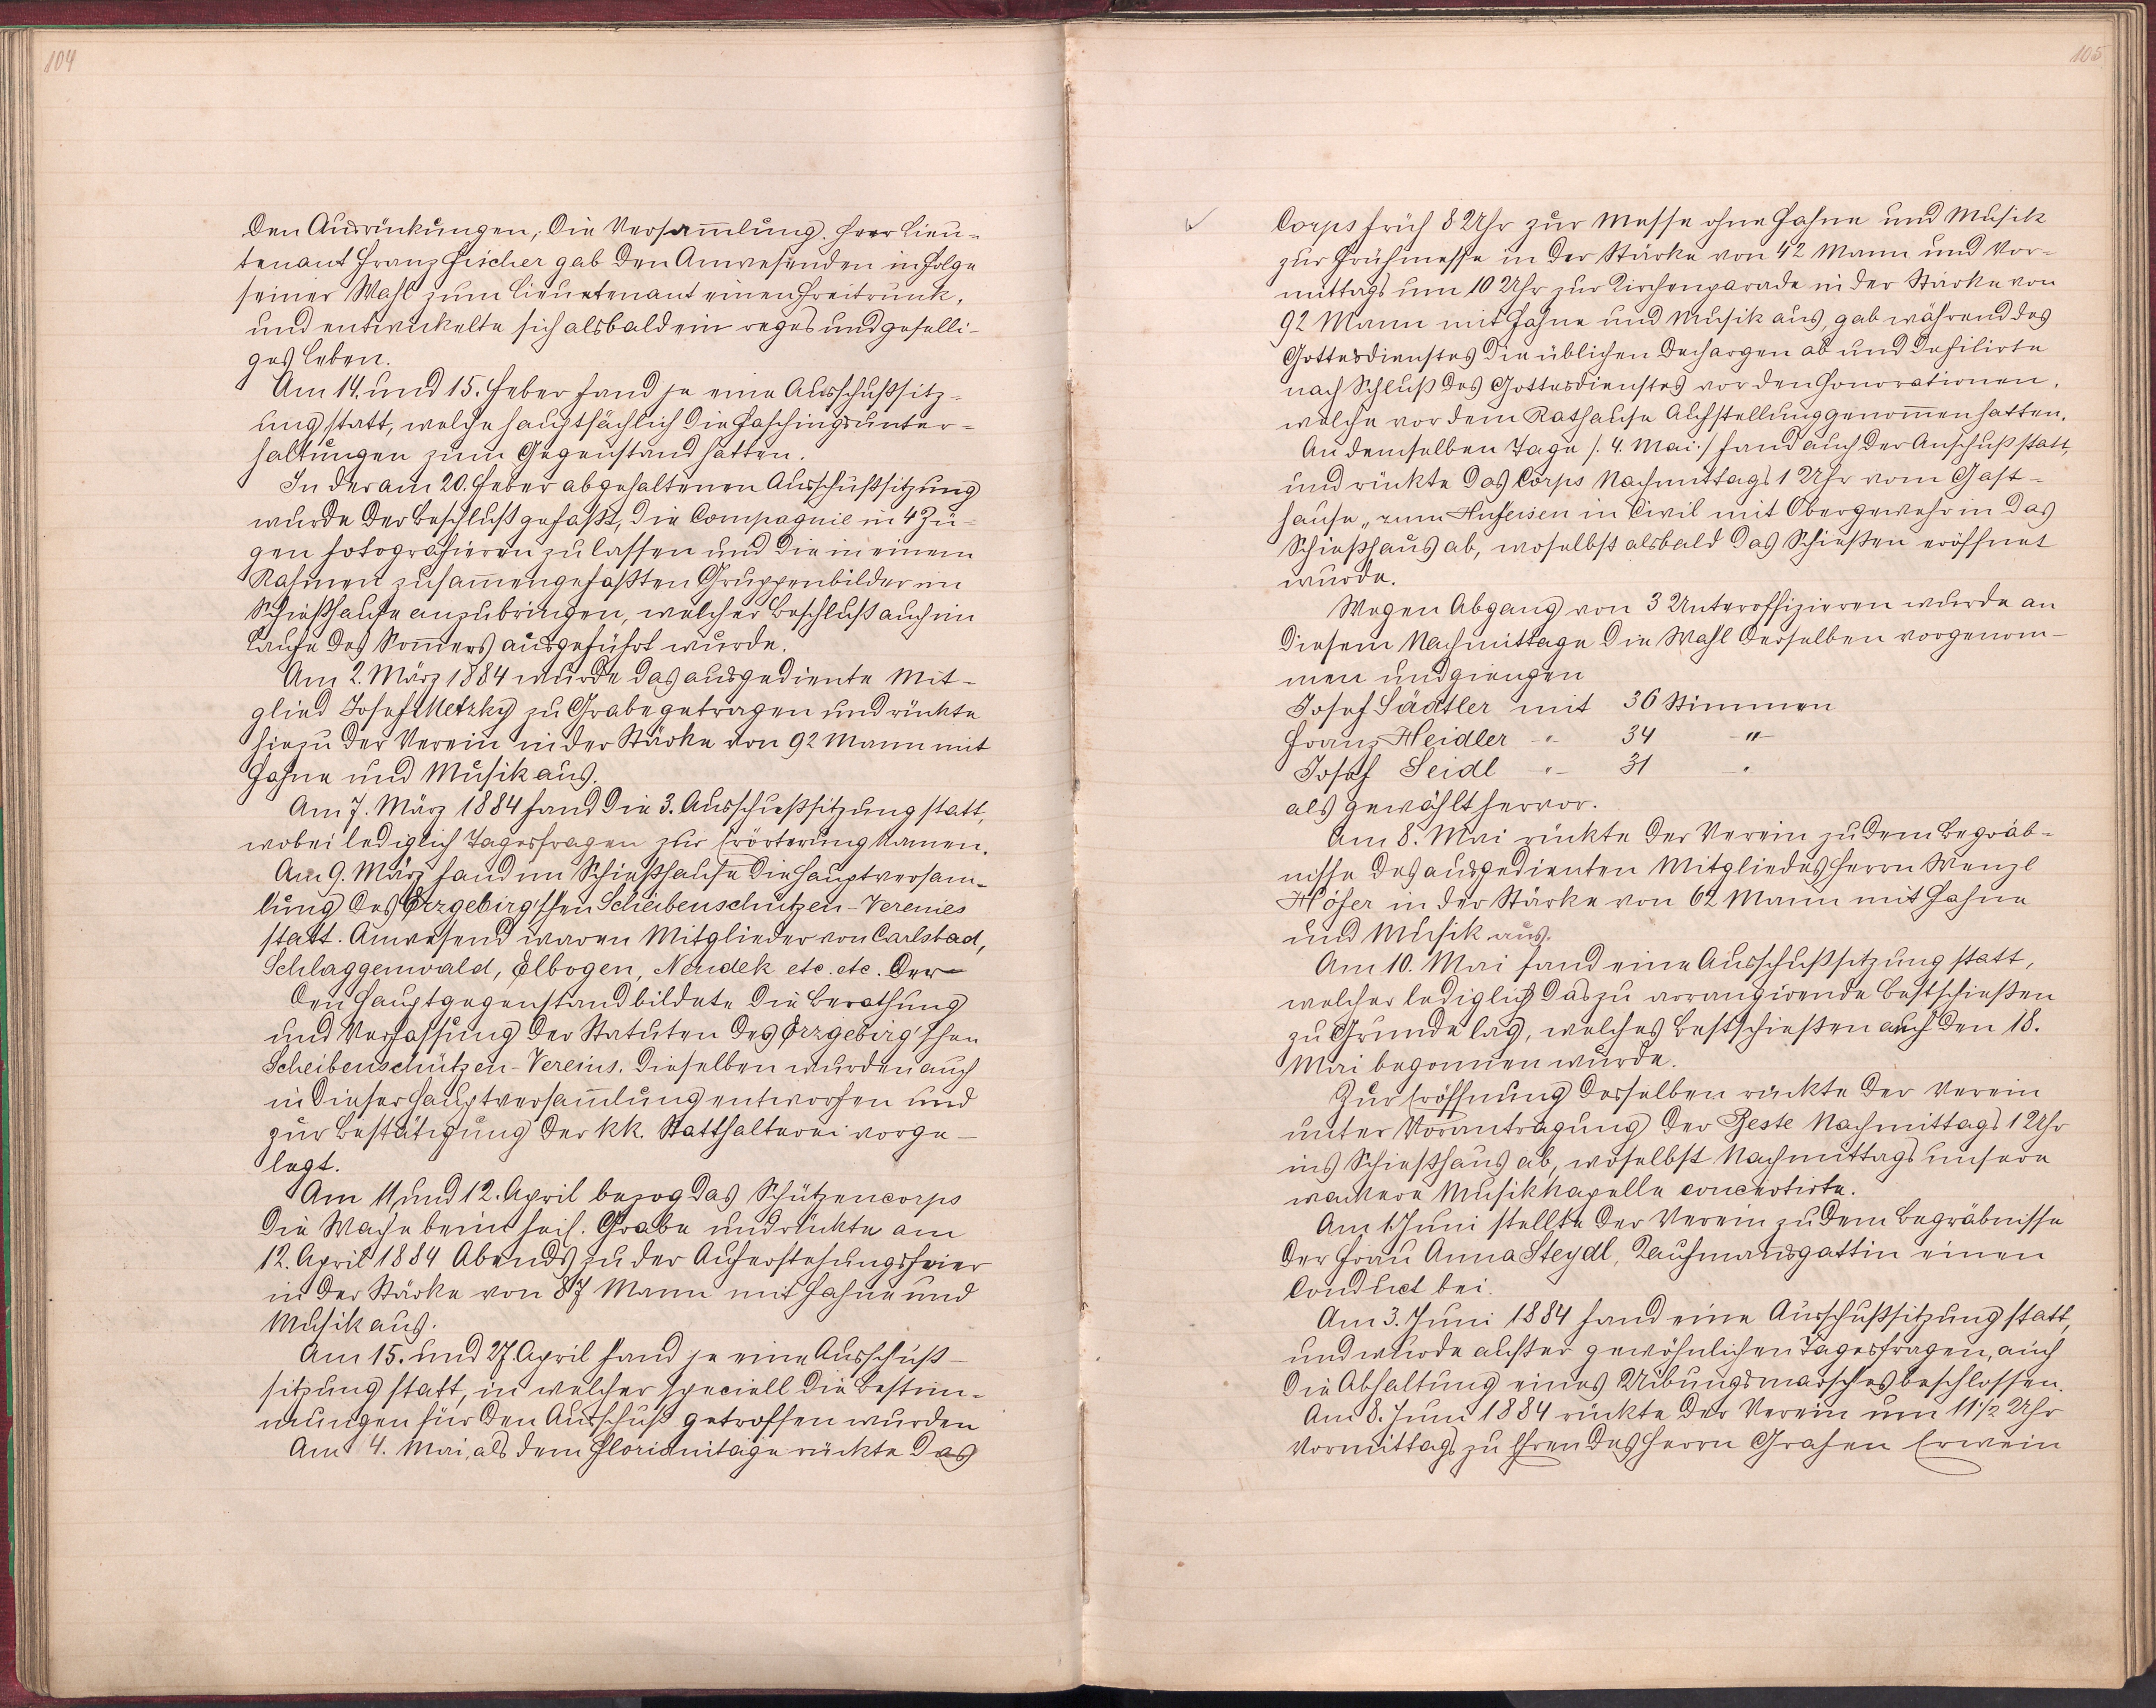 104
den Ausrückungen, die Versam̄lung. Herr Lieu-
tenant Franz Fischer gab den Anwesenden in Folge
seiner Wahl zum Lieutenant einen Freitrunk,
und entwickelte sich alsbald ein reges und geselli-
ges Leben.
Am 14. und 15. Feber fand je eine Ausschußsitz-
ung statt, welche hauptsächlich die Faschingsunter-
haltungen zum Gegenstand hatten.
In der am 20. Feber abgehaltenen Ausschußsitzung
wurde der Beschluß gefaßt, die Compagnie in 4 Zü-
gen fotografieren zu lassen und die in einem
Rahmen zusam̄engefaßten Gruppenbilder im
Schießhause anzubringen, welcher Beschluß auch im
Laufe des Som̄ers ausgeführt wurde.
Am 2. März 1884 wurde das ausgediente Mit-
glied Josef Metzky zu Grabe getragen und rückte
hiezu der Verein in der Stärke von 92 Mann mit
Fahne und Musik aus.
Am 7. März 1884 fand die 3. Ausschußsitzung statt,
wobei lediglich Tagesfragen zur Erörterung kamen.
Am 9. März fand im Schießhause die Hauptversam̄-
lung des Erzgebirg'schen Scheibenschützen-Vereines
statt. Anwesend waren Mitglieder von Carlsbad,
Schlaggenwald, Elbogen, Neudek etc. etc. Der
den Hauptgegenstand bildete die Berathung
und Verfassung der Statuten des Erzgebirg'schen
Scheibenschützen-Vereins. Dieselben wurden auch
in dieser Hauptversam̄lung entworfen und
zur Bestätigung der kk. Statthalterei vorge-
legt.
Am 11. und 12. April bezog das Schützencorps
die Wache beim heil. Grabe und rückte am
12. April 1884 Abends zu der Auferstehungsfeier
in der Stärke von 87 Mann mit Fahne und
Musik aus.
Am 15. und 27. April fand je eine Ausschuß-
sitzung statt, in welcher speciell die Bestim-
mungen für den Anschuß getroffen wurden
Am 4. Mai, als dem Florianitage rückte das
105
Corps früh 8 Uhr zur Messe ohne Fahne und Musik
zur Frühmesse in der Stärke von 42 Mann und Vor-
mittags um 10 Uhr zur Kirchenparade in der Stärke von
92 Mann mit Fahne und Musik aus, gab während des
Gottesdienstes die üblichen Dechargen ab und defilirte
nach Schluß des Gottesdienstes vor den Honorationen,
welche vor dem Rathause Aufstellung genom̄en hatten.
An demselben Tage /: 4. Mai :/ fand auch der Anschuß statt,
und rückte das Corps Nachmittags 1 Uhr vom Gast-
hause „zum Hufeisen in Civil mit Obergewehr in das
Schießhaus ab, woselbst alsbald das Schießen eröffnet
wurde.
Wegen Abgang von 3 Unteroffizieren wurde an
diesem Nachmittage die Wahl derselben vorgenom-
men und giengen
Josef Sädtler mit 36 Stimmen
Franz Heidler -"- 34 -"-
Josef Seidl -"- 31 -"-
als gewählt hervor.
Am 8. Mai rückte der Verein zu dem Begräb-
nisse des ausgedienten Mitgliedes Herrn Wenzl
Höfer in der Stärke von 62 Mann mit Fahne
und Musik aus.
Am 10. Mai fand eine Ausschußsitzung statt,
welcher lediglich das zu arrangirende Bestschießen
zu Grunde lag, welches Bestschießen auch den 18.
Mai begonnen wurde.
Zur Eröffnung desselben rückte der Verein
unter Vorantragung der Beste Nachmittags 1 Uhr
ins Schießhaus ab, woselbst Nachmittags unsere
wackere Musikkapelle concertirte.
Am 1. Juni stellte der Verein zu dem Begräbnisse
der Frau Anna Steydl, Kaufmannsgattin einen
Conduct bei.
Am 3. Juni 1884 fand eine Ausschußsitzung statt,
und wurde außer gewöhnlichen Tagesfragen, auch
die Abhaltung eines Uibungsmarsches beschlossen.
Am 8. Juni 1884 rückte der Verein um 11 1/2 Uhr
Vormittags zu Ehren des Herrn Grafen Erwein